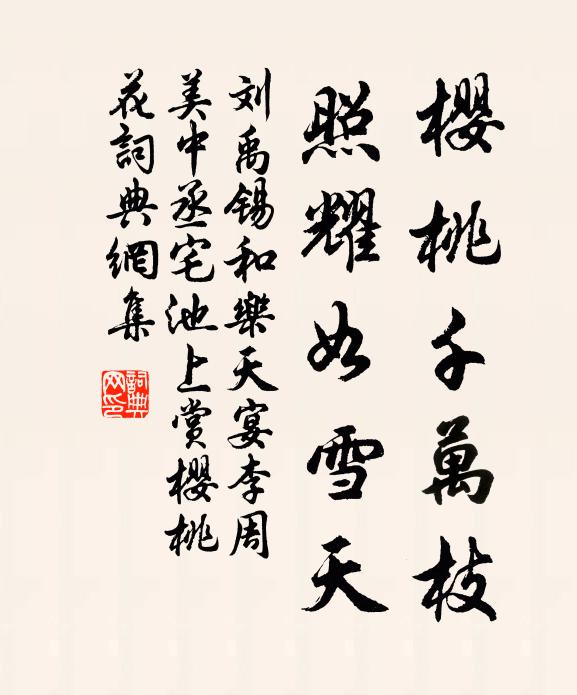 櫻桃千萬枝
照耀如雪天
刘禹锡和樂天宴李周
美中丞宅池上賞櫻桃
花詞典網集
詞典网印